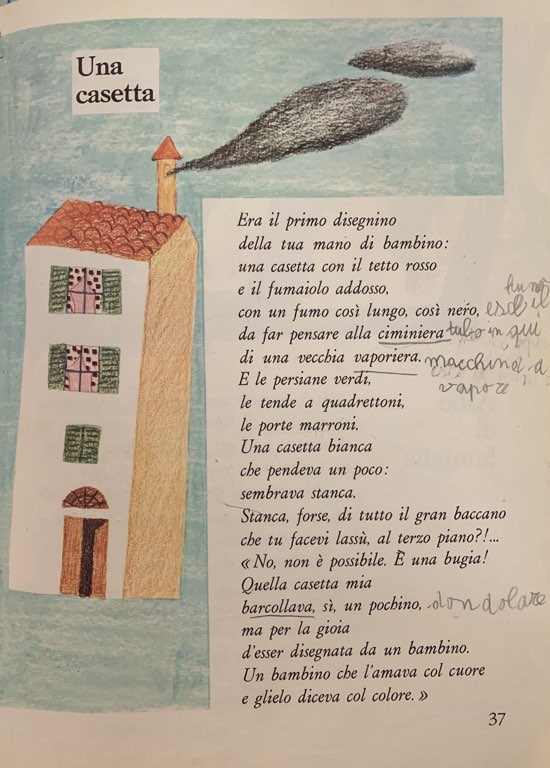 Una
casetta
Era il primo disegnino
della tua mano di bambino:
una casetta con il tetto rosso
e il fumaiolo addosso,
con un fumo così lungo, così nero,
da far pensare alla ciminiera tubo in qui esce il fumo
di una vecchia vaporiera. macchina a
vapore
E le persiane verdi,
le tende a quadrettoni,
le porte marroni.
Una casetta bianca
che pendeva un poco:
sembrava stanca.
Stanca, forse, di tutto il gran baccano
che tu facevi lassù, al terzo piano?!...
«No, non è possibile. È una bugia!
Quella casetta mia
barcollava, sì, un pochino, dondolare
ma per la gioia
d'esser disegnata da un bambino.
Un bambino che l'amava col cuore
e glielo diceva col colore.»
37